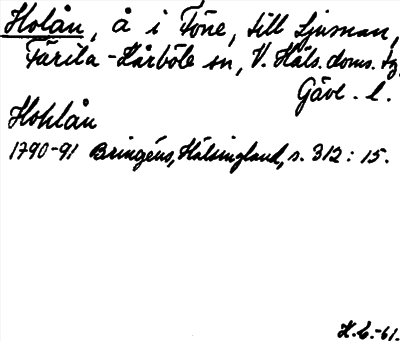 Holån, å i Töne, till Ljusnan,
Färila-Kårböle sn, V. Häls. doms. tg,
Gävl. l.
Hohlån
1790-91 Bringéus, Hälsingland, s. 312: 15.
H.C.-61.